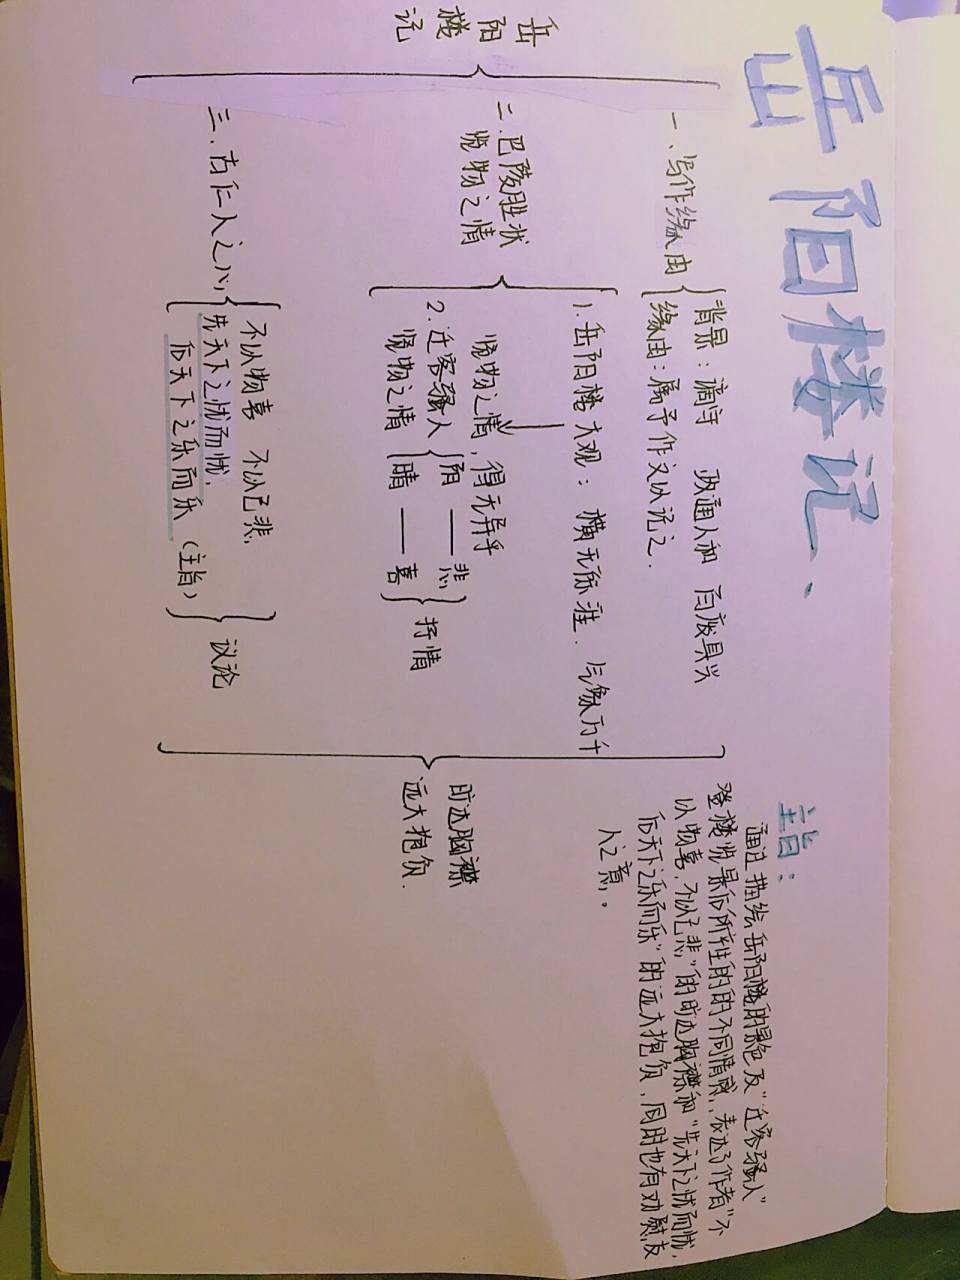 岳阳楼记.
岳阳楼记
一、写作缘由
背景：谪守 政通人和 百废具兴
缘由：属予作文以记之.
二.巴陵胜状
览物之情
1.岳阳楼大观：横无际涯. 气象万千
览物之情，得无异乎
2.迁客骚人
览物之情
阳——悲
晴——喜
抒情
三.古仁人之心
不以物喜 不以己悲,
先天下之忧而忧,
后天下之乐而乐（主旨）
议论
旷达胸襟
远大抱负.
主旨：
通过描绘岳阳楼的景色及"迁客骚人"
登楼览景后所产生的的不同情感，表达了作者"不
以物喜，不以己悲"的旷达胸襟和"先天下之忧而忧,
后天下之乐而乐"的远大抱负，同时也有劝慰友
人之意。